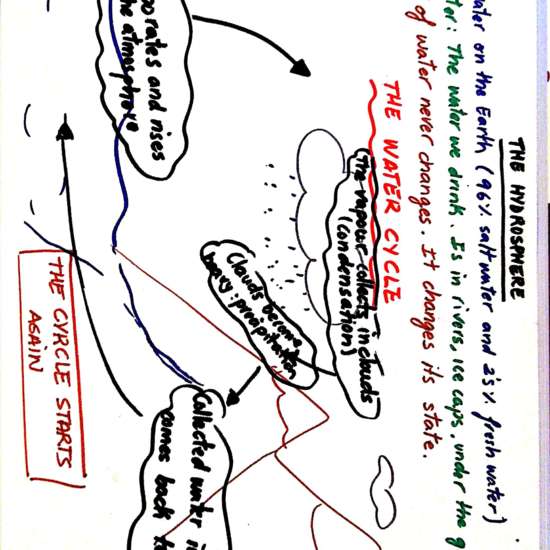 THE HYDROSPHERE
ater on the Earth (96% salt water and 2'5% fresh water)
ter: The water we drink. Is in rivers, ice caps, under the g
of water never changes. It changes its state.
THE WATER CYCLE
The vapour collects in clouds
(condensation)
Clouds become
heavy: precipitation
orates and rises
he atmosphere
Collected water i
comes back t
THE CYRCLE STARTS
AGAIN